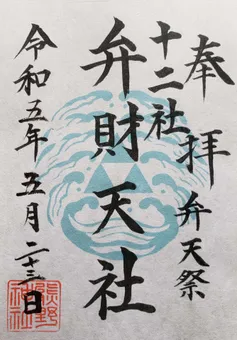 奉拝
弁天祭
十二社
弁財天社
令和五年五月二十三日
熊野神社